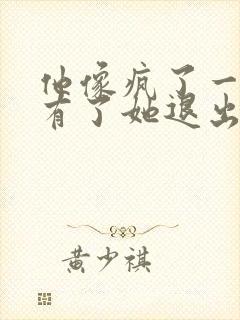 他像疯了一
有了她退出
黄少祺